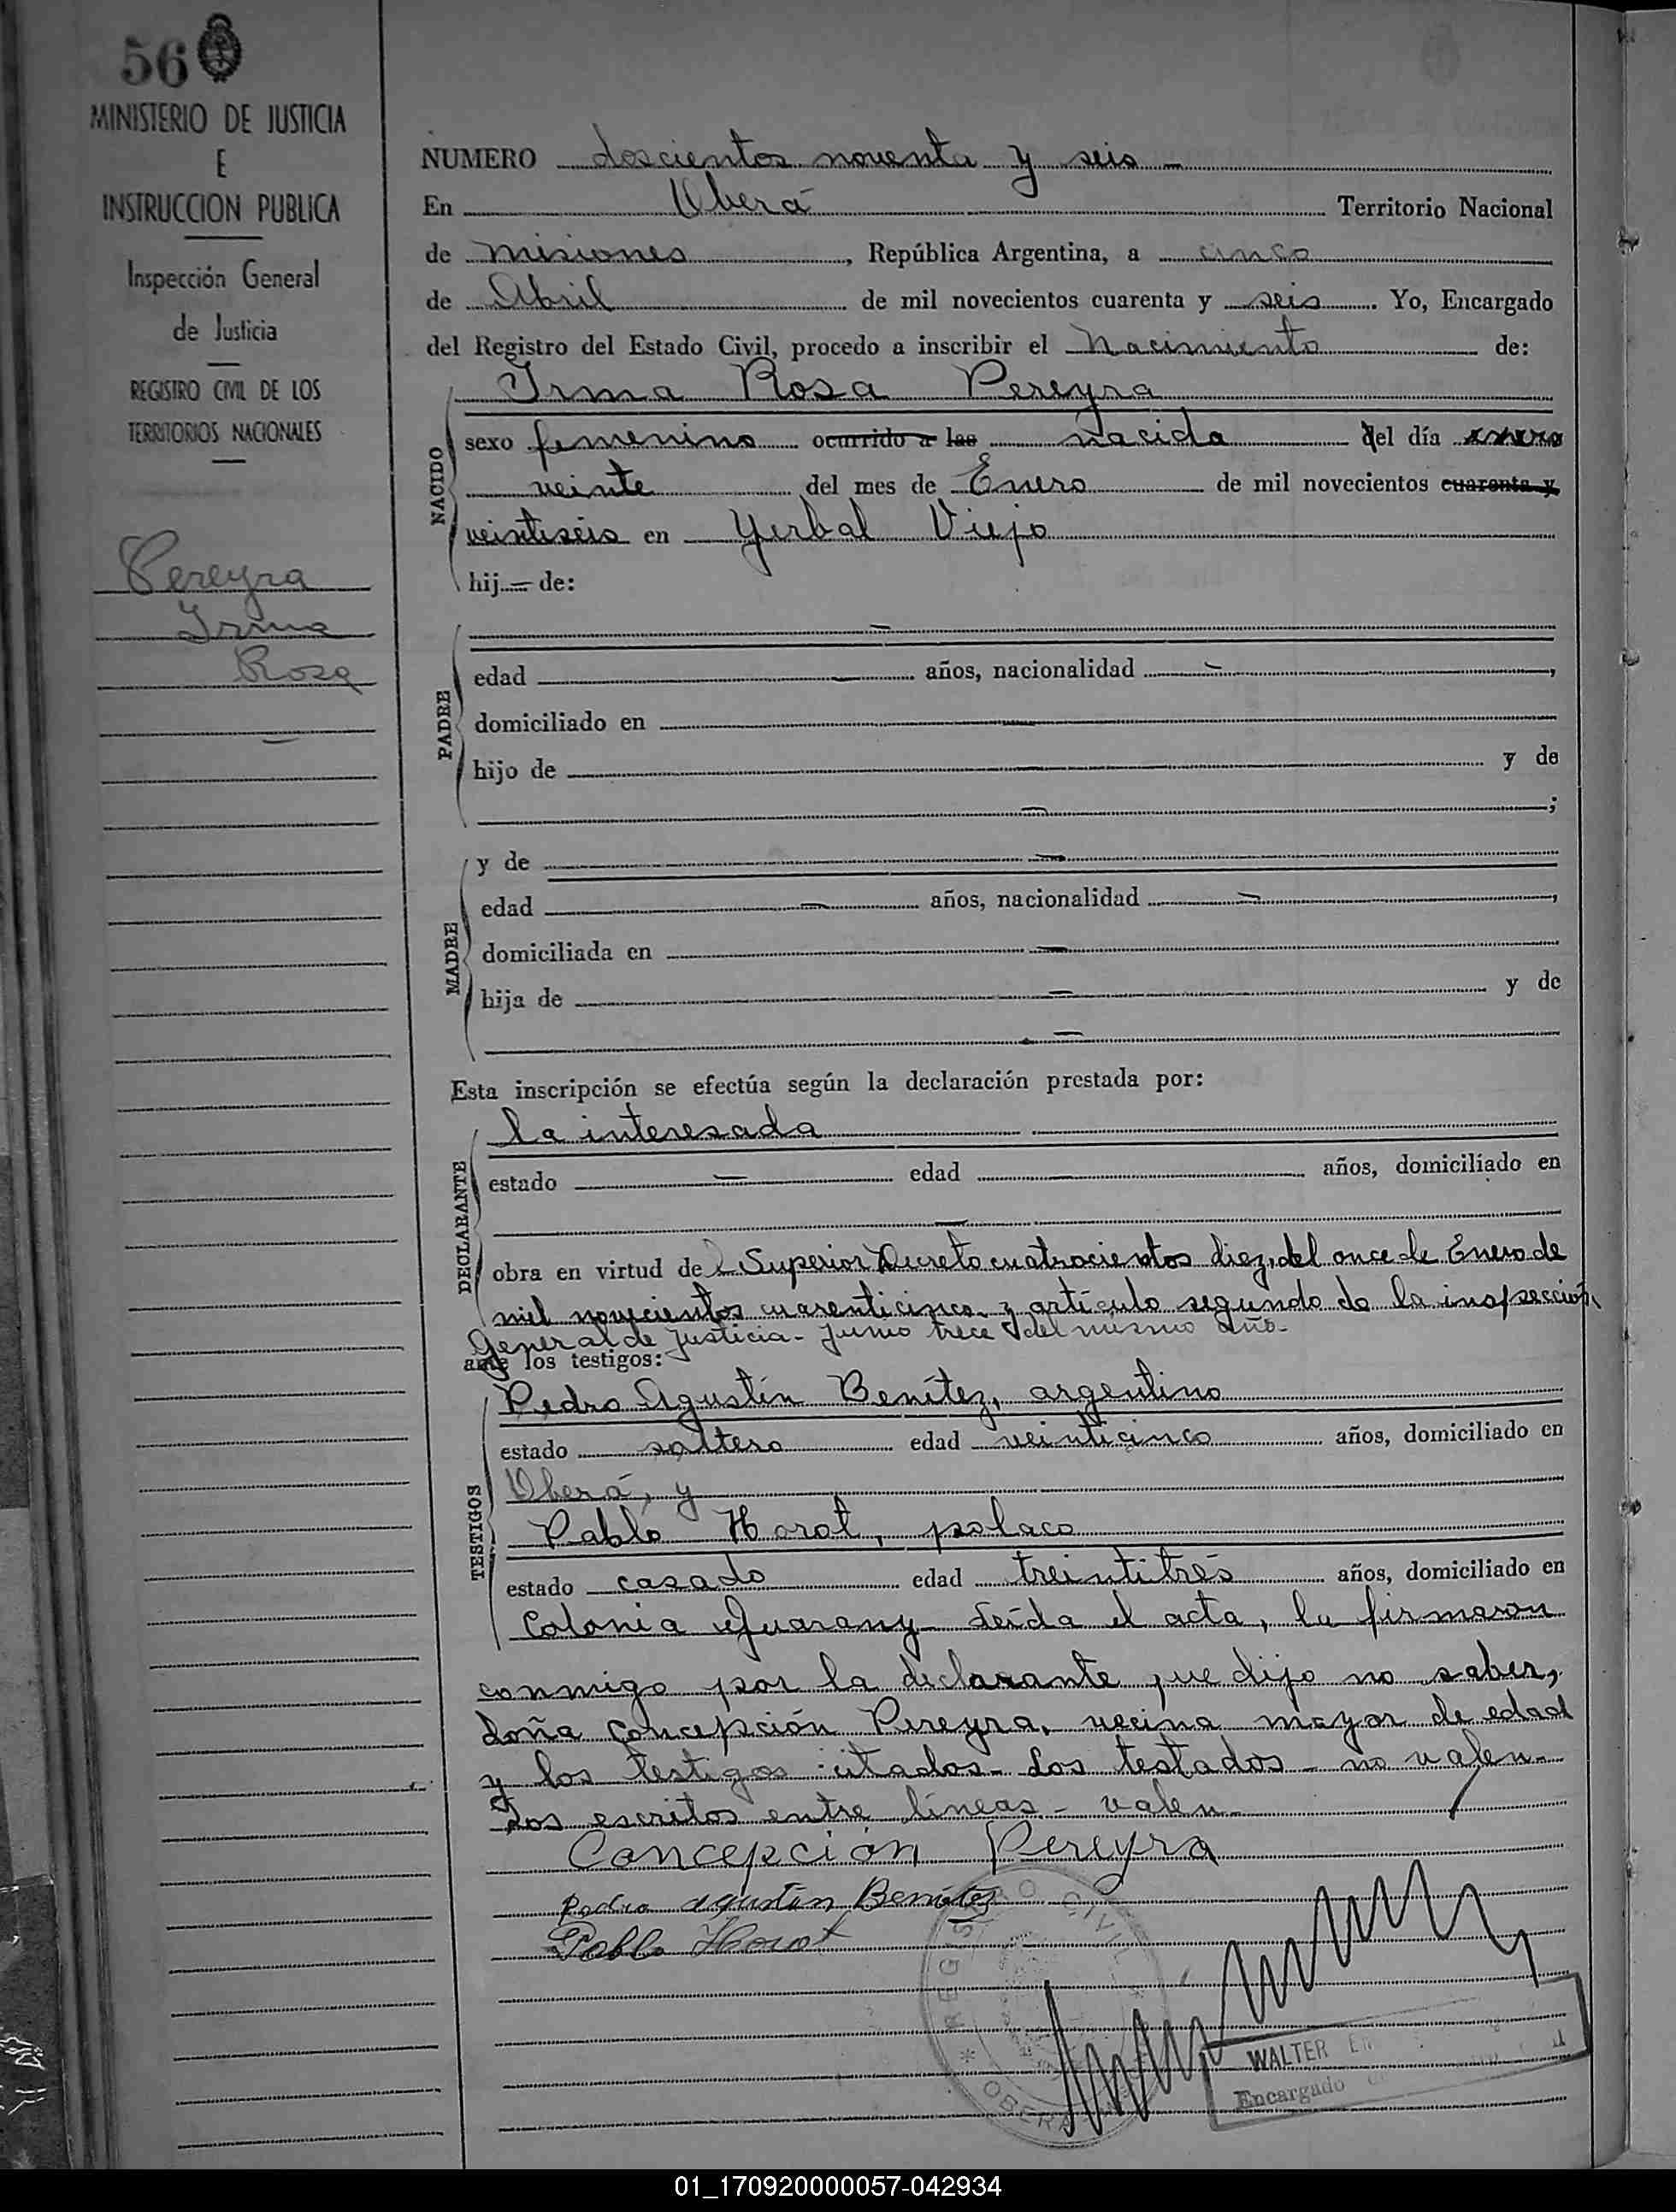 56
MINISTERIO DE JUSTICIA
E
INSTRUCCION PUBLICA
Inspección General
de Justicia
REGISTRO CIVIL DE LOS
TERRITORIOS NACIONALES
Pereyra
Irma
Rosa
NUMERO doscientos noventa y seis
En Oberá Territorio Nacional
de misiones, República Argentina, a cinco
de Abril de mil novecientos cuarenta y seis. Yo, Encargado
del Registro del Estado Civil, procedo a inscribir el Nacimiento de:
NACIDO
Irma Rosa Pereyra
sexo femenino ocurrido a las nacida del día
veinte del mes de Enero de mil novecientos cuarenta y
veintiseis en Yerbal Viejo
hij — de:
PADRE
—
edad — años, nacionalidad —,
domiciliado en —
hijo de — y de
— ;
MADRE
y de —
edad — años, nacionalidad —,
domiciliada en —
hija de — y de
—
Esta inscripción se efectúa según la declaración prestada por:
DECLARANTE
la interesada
estado — edad — años, domiciliado en
—
obra en virtud del Superior Decreto cuatrocientos diez, del once de Enero de
mil novecientos cuarenticinco y artículo segundo de la inspección
General de Justicia - Junio trece del mismo año -
ante los testigos:
TESTIGOS
Pedro Agustín Benítez, argentino
estado soltero edad veinticinco años, domiciliado en
Oberá, y
Pablo Horot, polaco
estado casado edad treintitrés años, domiciliado en
Colonia Guarany Leída el acta, la firmaron
conmigo por la declarante que dijo no saber,
doña Concepción Pereyra, vecina mayor de edad
y los testigos citados - Los testados - no valen -
Los escritos entre líneas - valen -
Concepción Pereyra
Pedro Agustín Benítez
Pablo Horot
REGISTRO CIVIL
* OBERA
WALTER
Encargado
01_170920000057-042934